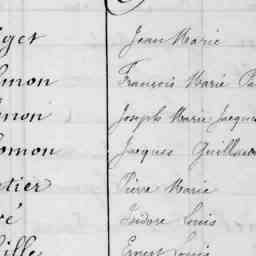 get Jean Marie
mon François Marie Pa
mon Joseph Marie Jacque
omon Jacques Guillau
tier Pierre Marie
é Isidore Louis
ille Ernest Louis